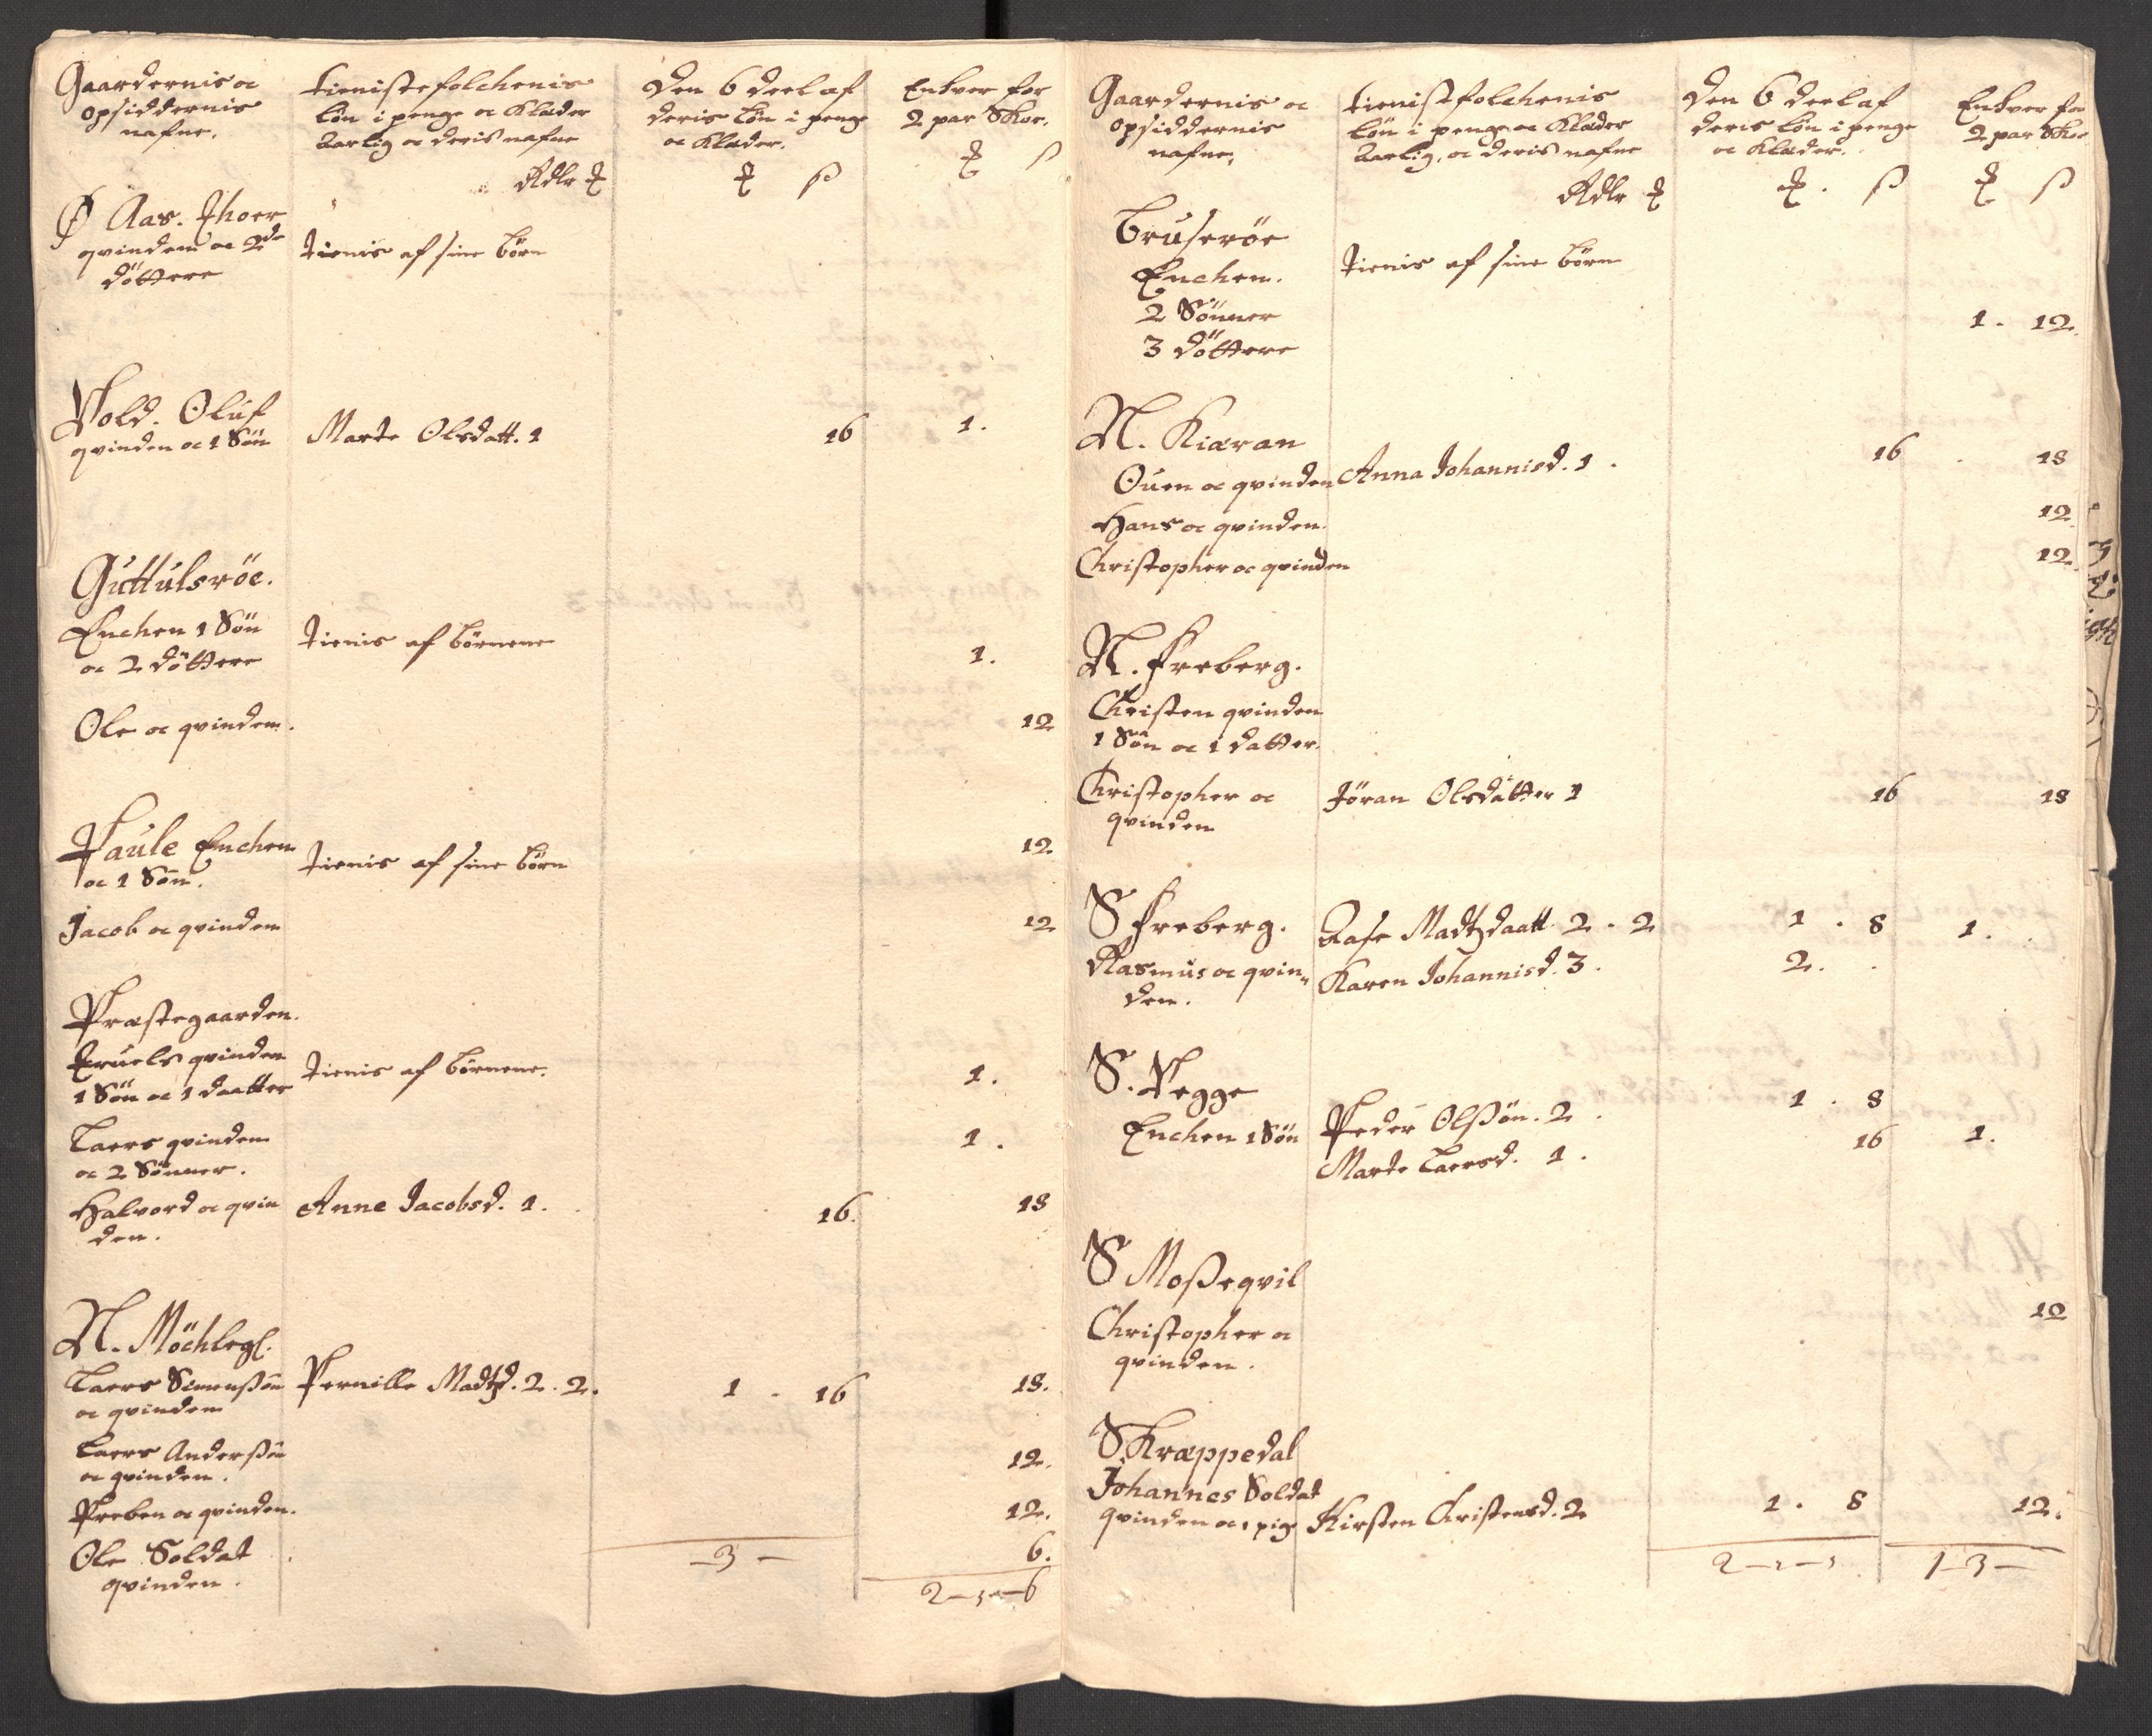 Gaardernis oc
opsiddernis
nafne.
tienistefolchenis
løn i penge oc Klæder
Aarlig oc deris nafne
Rdlr
Den 6 deel af
deris løn i penge
oc Klæder.
ß
Enhver for
2 par Skoe.
ß
Ø Aas. Thoer
qvinden oc 2de
döttere
tienis af sine børn
Vold. Oluf
qvinden oc 1 Sön
Marte Olsdatt. 1
16
1.
Guttulsröe.
Enchen 1 Sön
oc 2 döttere
tienis af börnene
1.
Ole oc qvinden.
12
Paule Enchen
oc 1 Sön.
tienis af sine börn
12
Jacob oc qvinden
12
Præstegaarden.
Truels qvinden
1 Sön oc 1 daatter
tienis af börnene.
1.
Laers qvinden
oc 2 Sönner.
1.
Halvord oc qvin
den.
Anne Jacobsd. 1.
16.
18
N. Möchlegs.
Laers Simenßön
oc qvinden
Pernille Madtzd. 2. 2.
1 - 16
18.
Laers Anderßön
oc qvinden.
12.
Preben oc qvinden.
12.
Ole Soldat
qvinden.
6.
3
Gaardernis oc
opsiddernis
nafne.
tienistfolchenis
løn i penge oc Klæder
Aarlig, oc deris nafne
Rdlr
Den 6 deel af
deris løn i penge
oc Klæder.
ß
Enhver for
2 par Skoe
ß
Bruseröe
Enchen.
2 Sönner
3 döttere
tienis af sine börn
1. 12.
N. Kiæran
Ouen oc qvinden
Anna Johannisd. 1.
16
18
Hans oc qvinden.
12
Christopher oc qvinden
12
N. Freberg.
Christen qvinden
1 Sön oc 1 datter.
Christopher oc
qvinden
Jöran Olsdatter 1
16
18
S Freberg.
Rasmus oc qvin„
den.
Aase Madtzdaatt 2. 2
1. 8
1.
Karen Johannisd. 3.
2.
S. Vegge
Enchen 1 Sön
Peder Olßön. 2
1. 8
Marte Laersd. 1.
16
1.
S Moßeqvil
Christopher oc
qvinden.
12
S Kræppedal
Johannes Soldat
qvinden oc 1 pige
Kirsten Christensd. 2
1. 8
12.
1-3-